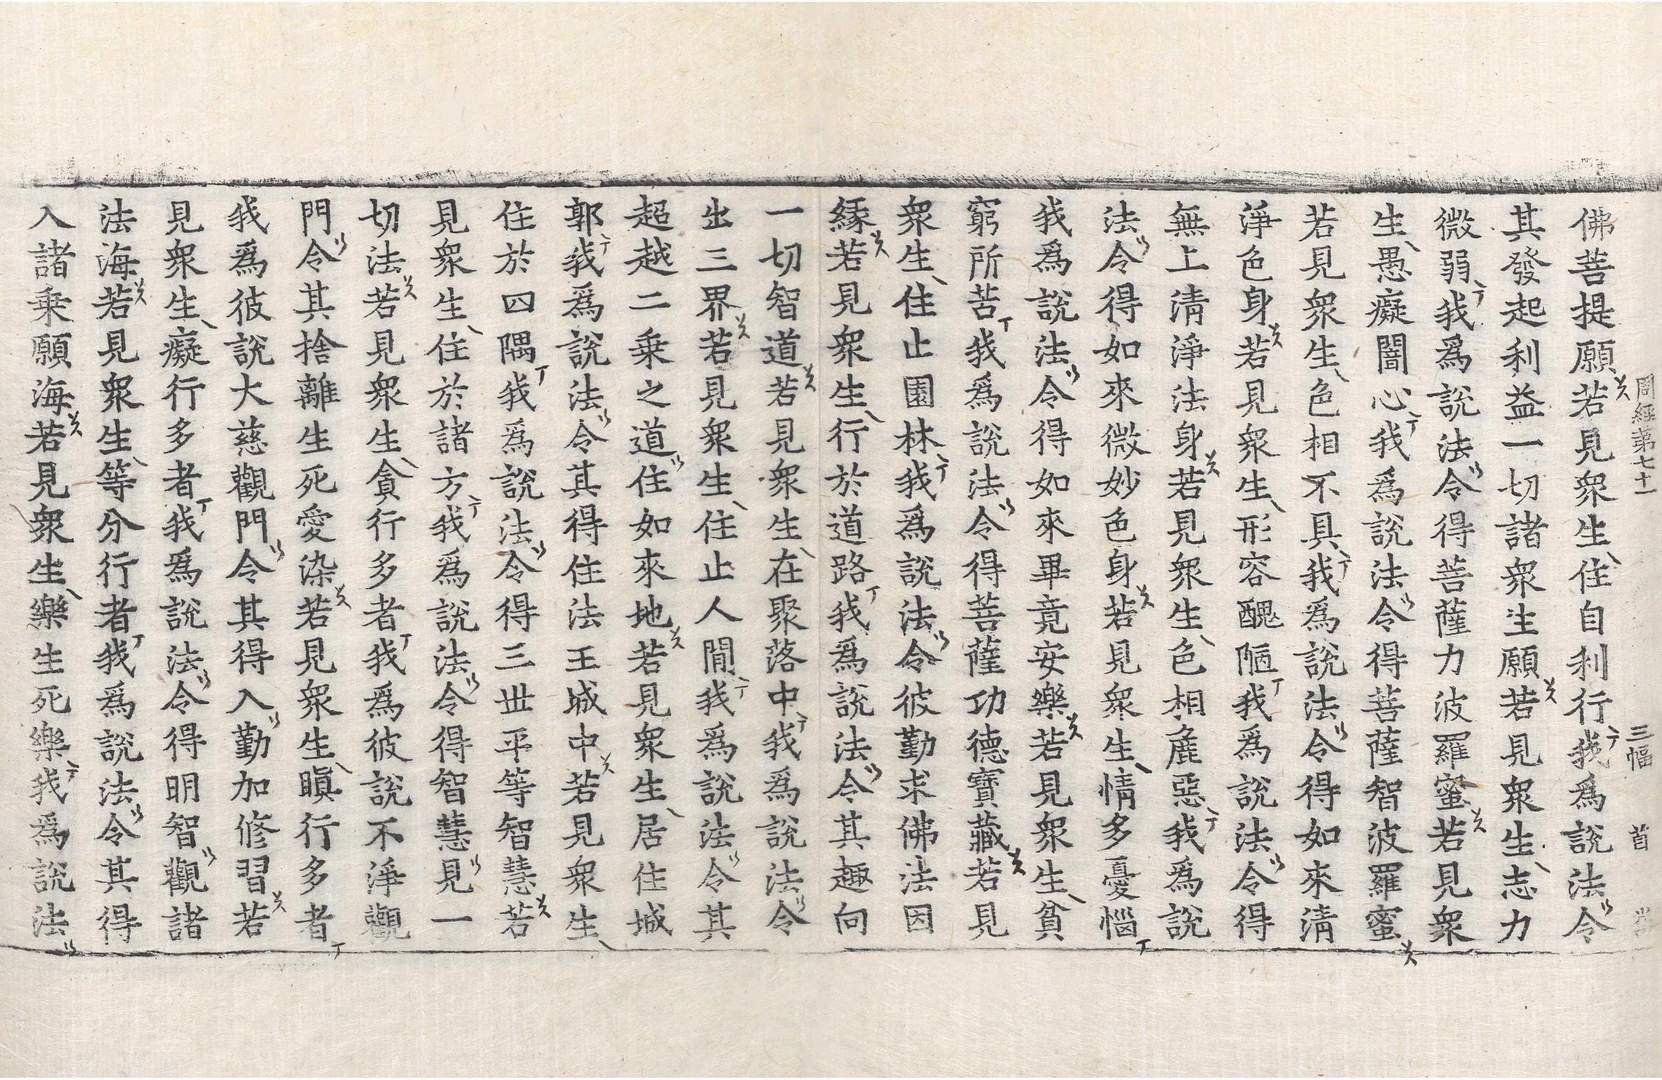 周經第七十一 三幅 首
佛菩提願若見衆生住自利行我爲說法令
其發起利益一切諸衆生願若見衆生志力
微弱我爲說法令得菩薩力波羅蜜若見衆
生愚癡闇心我爲說法令得菩薩智波羅蜜
若見衆生色相不具我爲說法令得如來清
淨色身若見衆生形容醜陋我爲說法令得
無上清淨法身若見衆生色相麁惡我爲說
法令得如來微妙色身若見衆生情多憂惱
我爲說法令得如來畢竟安樂若見衆生貧
窮所苦我爲說法令得菩薩功德寶藏若見
衆生住止園林我爲說法令彼勤求佛法因
緣若見衆生行於道路我爲說法令其趣向
一切智道若見衆生在聚落中我爲說法令
出三界若見衆生住止人間我爲說法令其
超越二乘之道住如來地若見衆生居住城
郭我爲說法令其得住法王城中若見衆生
住於四隅我爲說法令得三世平等智慧若
見衆生住於諸方我爲說法令得智慧見一
切法若見衆生貪行多者我爲彼說不淨觀
門令其捨離生死愛染若見衆生瞋行多者
我爲彼說大慈觀門令其得入勤加修習若
見衆生癡行多者我爲說法令得明智觀諸
法海若見衆生等分行者我爲說法令其得
入諸乘願海若見衆生樂生死樂我爲說法